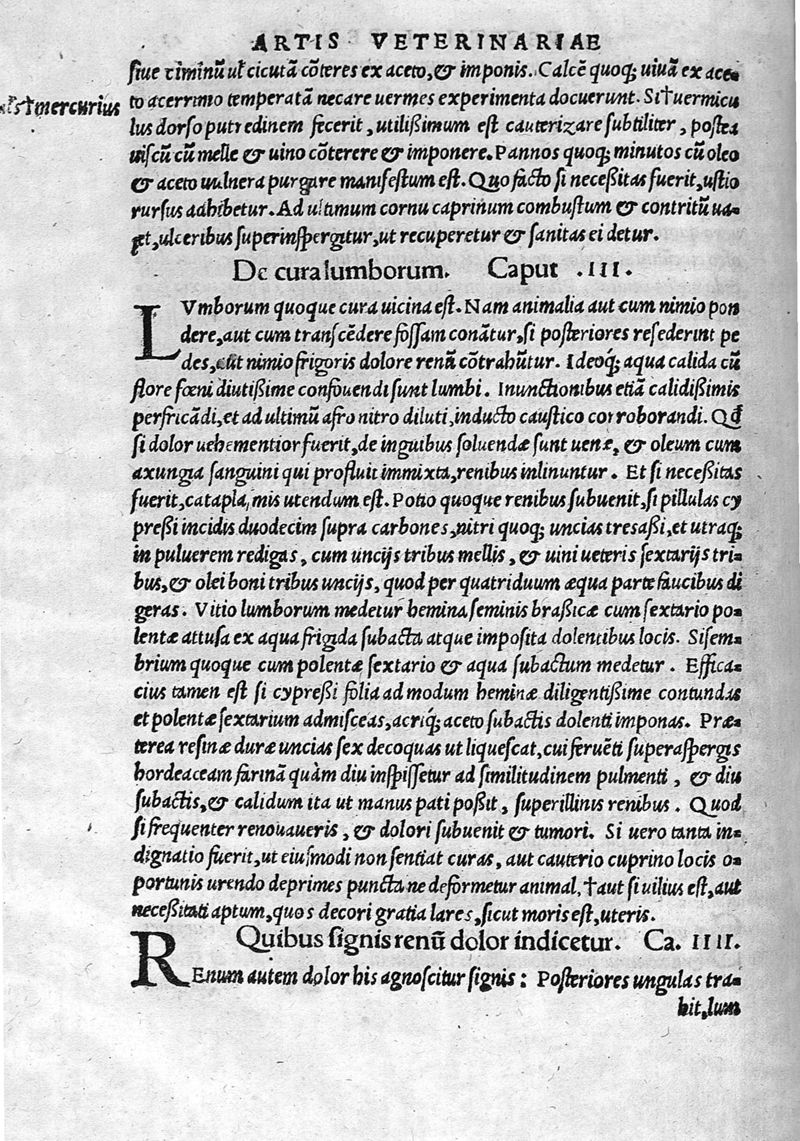 ARTIS VETERINARIAE
siue timinū ul̄ cicutā cōteres ex aceto, & imponis. Calcē quoq; uiuā ex ace-
to acerrimo temperatā necare uermes experimenta docuerunt. Si†uermicu
†mercurius
lus dorso putredinem fecerit, utilißimum est cauterizare subtiliter, postea
uiscū cū melle & uino cōterere & imponere. Pannos quoq; minutos cū oleo
& aceto uulnera purgare manifestum est. Quo facto si neceßitas fuerit, ustio
rursus adhibetur. Ad ultimum cornu caprinum combustum & contritū ua-
let, ulceribus superinspergitur, ut recuperetur & sanitas ei detur.
De cura lumborum. Caput .III.
LVmborum quoque cura uicina est. Nam animalia aut cum nimio pon
dere, aut cum transcēdere fossam conātur, si posteriores resederint pe
des, aut nimio frigoris dolore renū cōtrahūtur. Ideoq; aqua calida cū
flore fœni diutißime confouendi sunt lumbi. Inunctionibus etiā calidißimis
perfricādi, et ad ultimū afro nitro diluti, inducto caustico corroborandi. Qđ
si dolor uehementior fuerit, de inguibus soluendæ sunt uenæ, & oleum cum
axungia sanguini qui profluit immixta, renibus inlinuntur. Et si neceßitas
fuerit, cataplasmis utendum est. Potio quoque renibus subuenit, si pillulas cy
preßi incidis duodecim supra carbones, nitri quoq; uncias tres aßi, et utraq;
in puluerem redigas, cum uncijs tribus mellis, & uini ueteris sextarijs tri-
bus, & olei boni tribus uncijs, quod per quatriduum æqua parte faucibus di
geras. Vitio lumborum medetur hemina seminis braßicæ cum sextario po-
lentæ attusa ex aqua frigida subacta atque imposita dolentibus locis. Sisem-
brium quoque cum polentæ sextario & aqua subactum medetur. Effica-
cius tamen est si cypreßi folia ad modum heminæ diligentißime contundas
et polentæ sextarium admisceas, acriq; aceto subactis dolenti imponas. Præ-
terea resinæ duræ uncias sex decoquas ut liquescat, cui feruēti superaspergis
hordeaceam farinā quàm diu inspissetur ad similitudinem pulmenti, & diu
subactis, & calidum ita ut manus pati poßit, superillinis renibus. Quod
si frequenter renouaueris, & dolori subuenit & tumori. Si uero tanta in-
dignatio fuerit, ut eiusmodi non sentiat curas, aut cauterio cuprino locis o-
portunis urendo deprimes puncta ne deformetur animal, †aut si uilius est, aut
neceßitati aptum, quos decori gratia lares, sicut moris est, uteris.
Quibus signis renū dolor indicetur. Ca. IIII.
REnum autem dolor his agnoscitur signis: Posteriores ungulas tra-
hit, lum